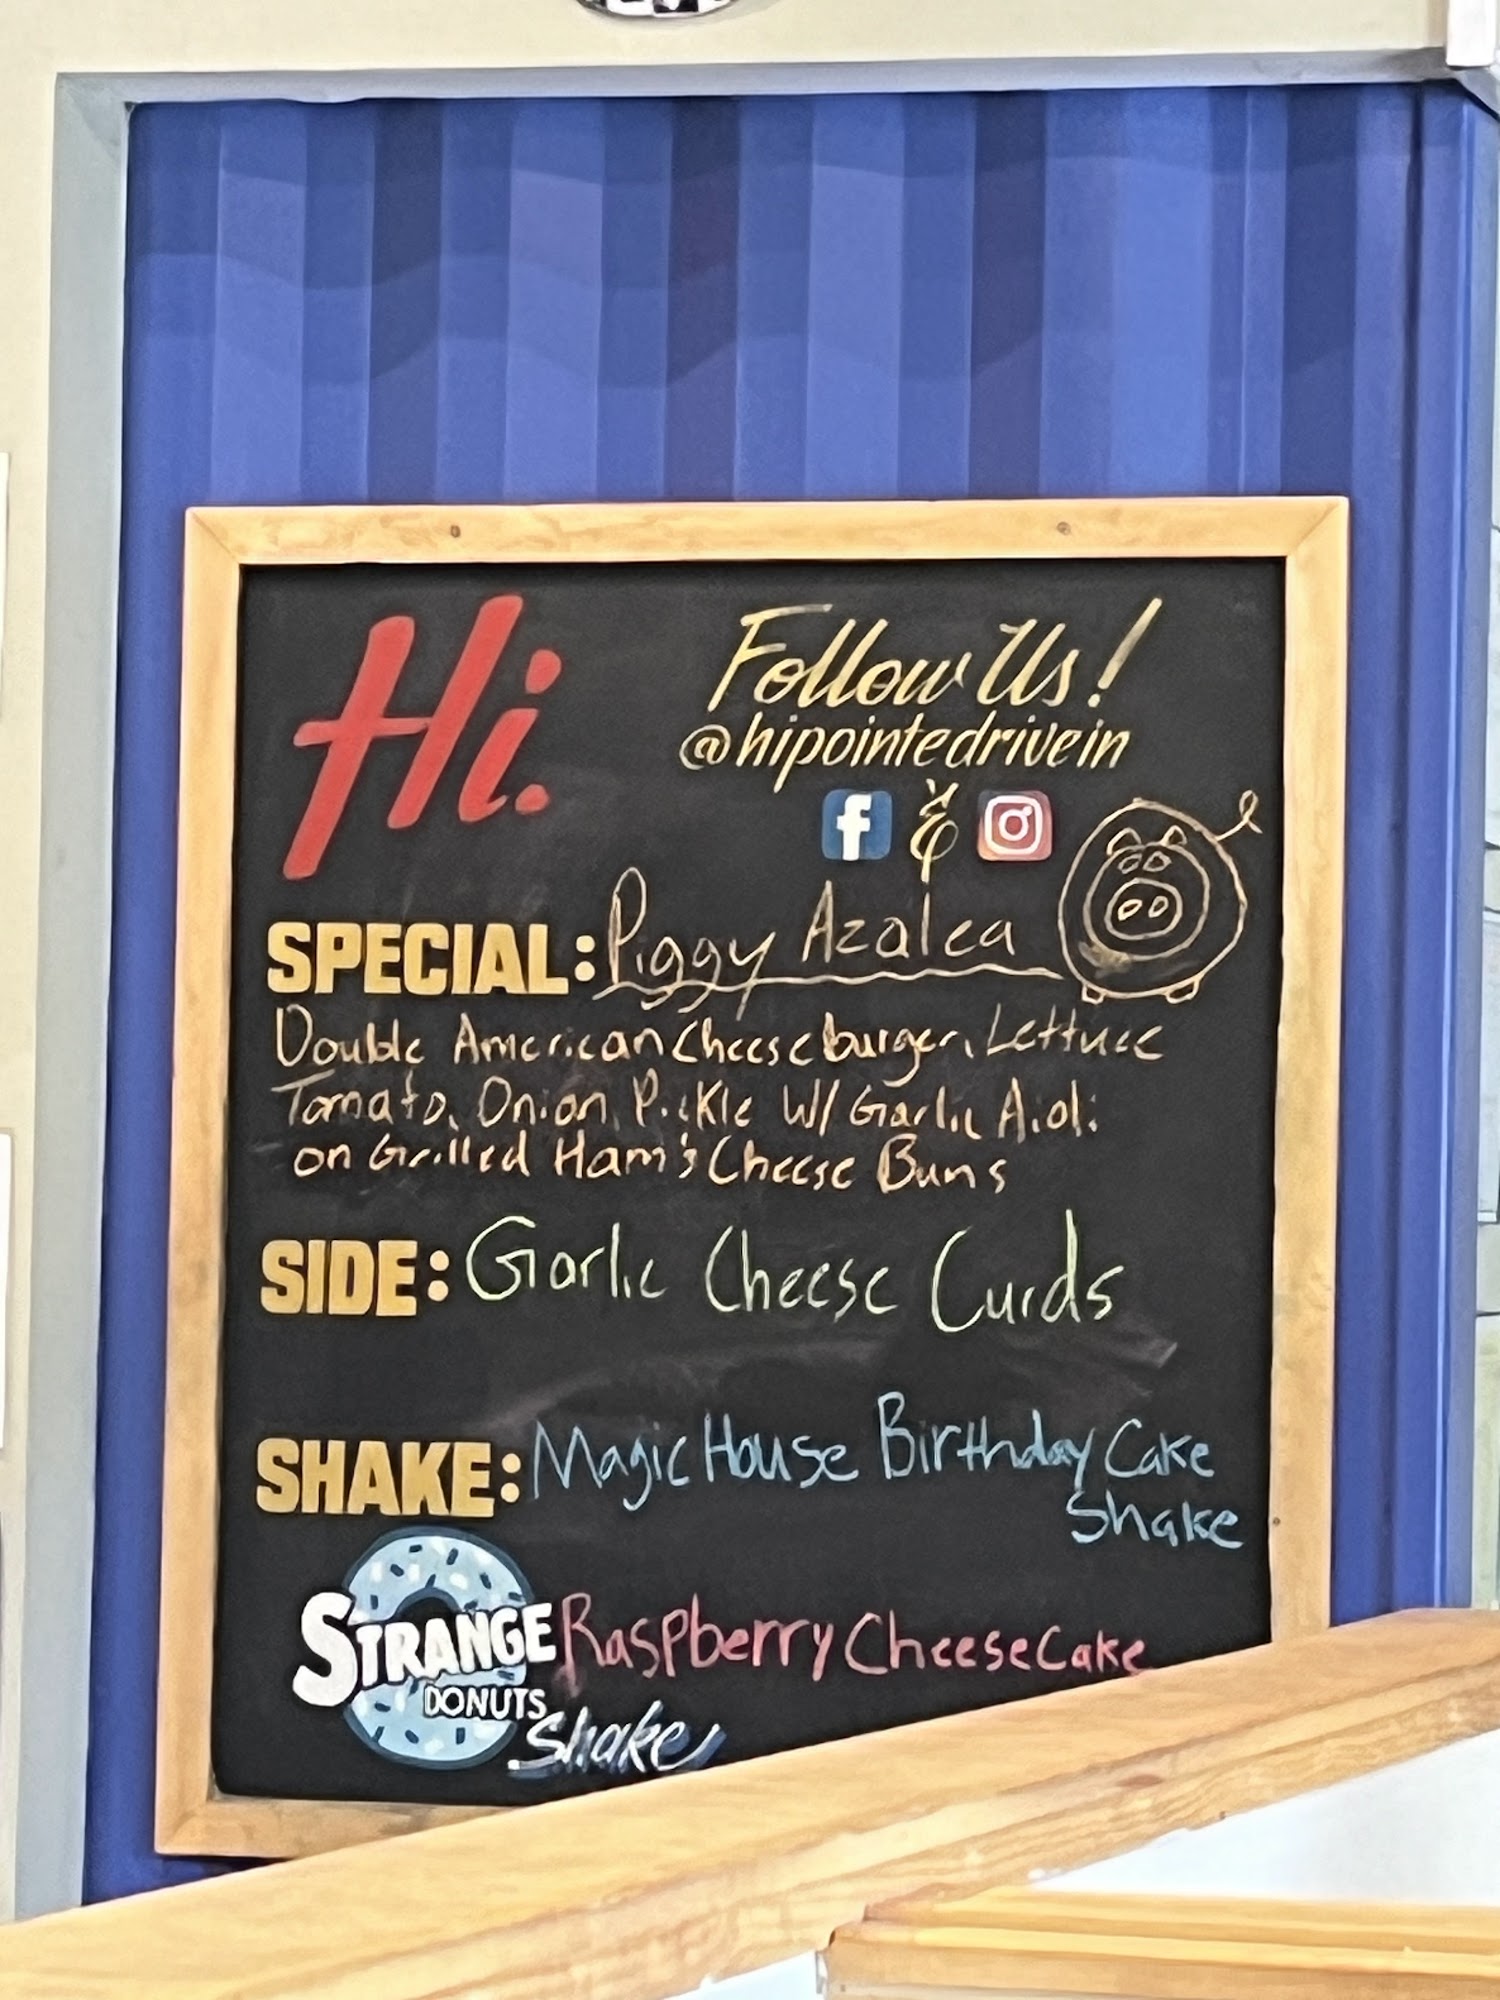 Hi.
Follow Us!
@hipointedrivein
f & 
SPECIAL: Piggy Azalea
Double American Cheeseburger, Lettuce
Tomato, Onion, Pickle W/ Garlic Aioli
on Grilled Ham & Cheese Buns
SIDE: Garlic Cheese Curds
SHAKE: Magic House Birthday Cake
Shake
STRANGE Raspberry Cheese Cake
DONUTS
Shake